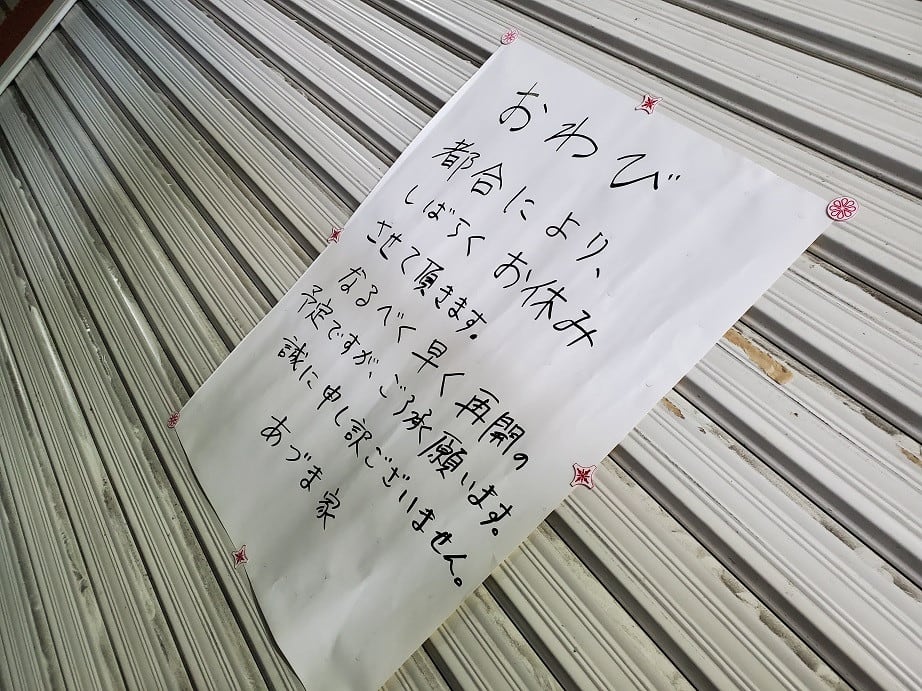 おわび
都合により、
しばらくお休み
させて頂きます。
なるべく早く再開の
予定ですが、ご了承願います。
誠に申し訳ございません。
あづま家